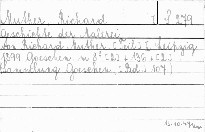 Muther, Richard 1 f 279
Geschichte der Malerei
von Richard Muther. Teil: Leipzig
1899 Goeschen 8° 136
Sammlung Goeschen. Bd. 107